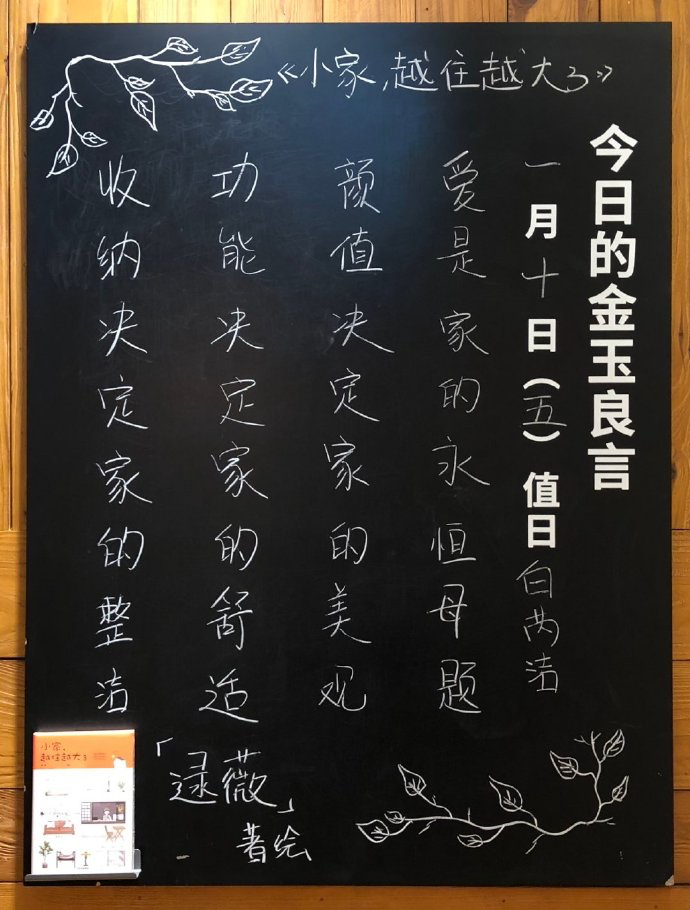 《小家,越住越大3》
今日的金玉良言
一月十日(五)值日白两洁
爱是家的永恒母题
颜值决定家的美观
功能决定家的舒适
收纳决定家的整洁
「逯薇」
著绘
小家,
越住越大3